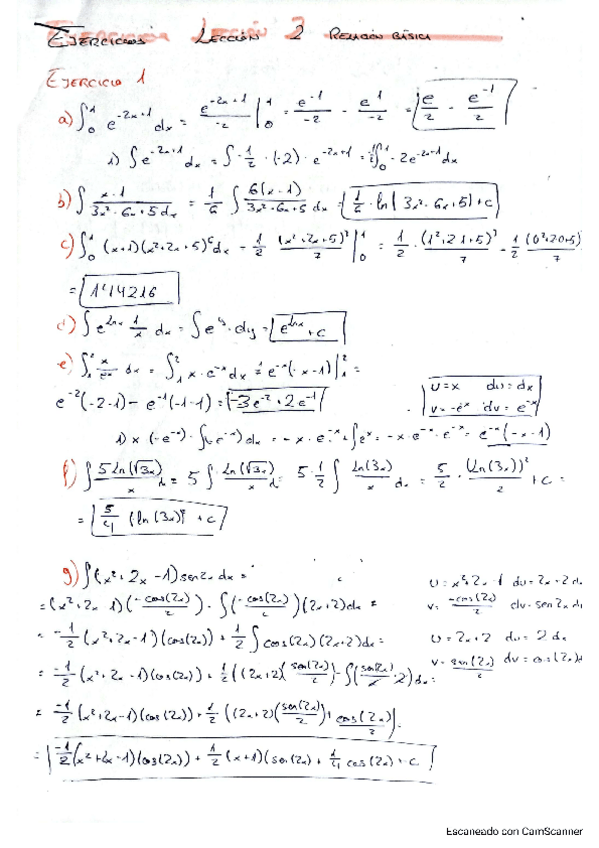 EJERCICIOS LECCIÓN 2 RELACIÓN BÁSICA
EJERCICIO 1
a) ∫₀¹ e^(-2x+1) dx = e^(-2x+1)/-2 |₀¹ = e^(-1)/-2 - e^1/-2 = e/2 - e^(-1)/2
1) ∫ e^(-2x+1) dx = ∫ -1/2 · (-2) · e^(-2x+1) = -1/2 ∫₀¹ -2e^(-2x+1) dx
b) ∫ x-1 / 3x²-6x+5 dx = 1/6 ∫ 6(x-1) / 3x²-6x+5 dx = 1/6 · ln|3x²-6x+5| + C
c) ∫₀¹ (x+1)(x²+2x+5)⁶ dx = 1/2 (x²+2x+5)⁷/7 |₀¹ = 1/2 · (1²+2·1+5)⁷/7 - 1/2 (0²+2·0+5)⁷/7
d) ∫ e^(lnx) 1/x dx = ∫ e^y · dy = e^(lnx) + C
e) ∫₁² x/e^x dx = ∫₁² x · e^(-x) dx = e^(-x)(-x-1)|₁² =
e^(-2)(-2-1) - e^(-1)(-1-1) = -3e^(-2) + 2e^(-1)
u=x du=dx
v=-e^(-x) dv=e^(-x)
1) x(-e^(-x)) - ∫(-e^(-x))dx = -x·e^(-x) + ∫e^(-x) = -x·e^(-x) - e^(-x) = e^(-x)(-x-1)
f) ∫ 5 ln(√3x)/x dx = 5 ∫ ln(√3x)/x dx = 5 · 1/2 ∫ ln(3x)/x dx = 5/2 · (ln(3x))²/2 + C =
= 5/4 (ln(3x))² + C
g) ∫(x²+2x-1) sen2x dx =
= (x²+2x-1)(-cos(2x)/2) - ∫(-cos(2x)/2)(2x+2)dx =
u=x²+2x-1 du=2x+2d
v=-cos(2x)/2 dv=sen2x d
= -1/2 (x²+2x-1)(cos(2x)) + 1/2 ∫ cos(2x)(2x+2)dx =
u=2x+2 du=2dx
v=sen(2x)/2 dv=cos(2x)d
= -1/2 (x²+2x-1)(cos(2x)) + 1/2 ((2x+2)(sen(2x)/2) - ∫(sen(2x)/2 · 2)dx =
= -1/2 (x²+2x-1)(cos(2x)) + 1/2 ((2x+2)(sen(2x)/2) + cos(2x)/2)
= -1/2 (x²+2x-1)(cos(2x)) + 1/2 (x+1)(sen(2x) + 1/4 cos(2x) + C
Escaneado con CamScanner